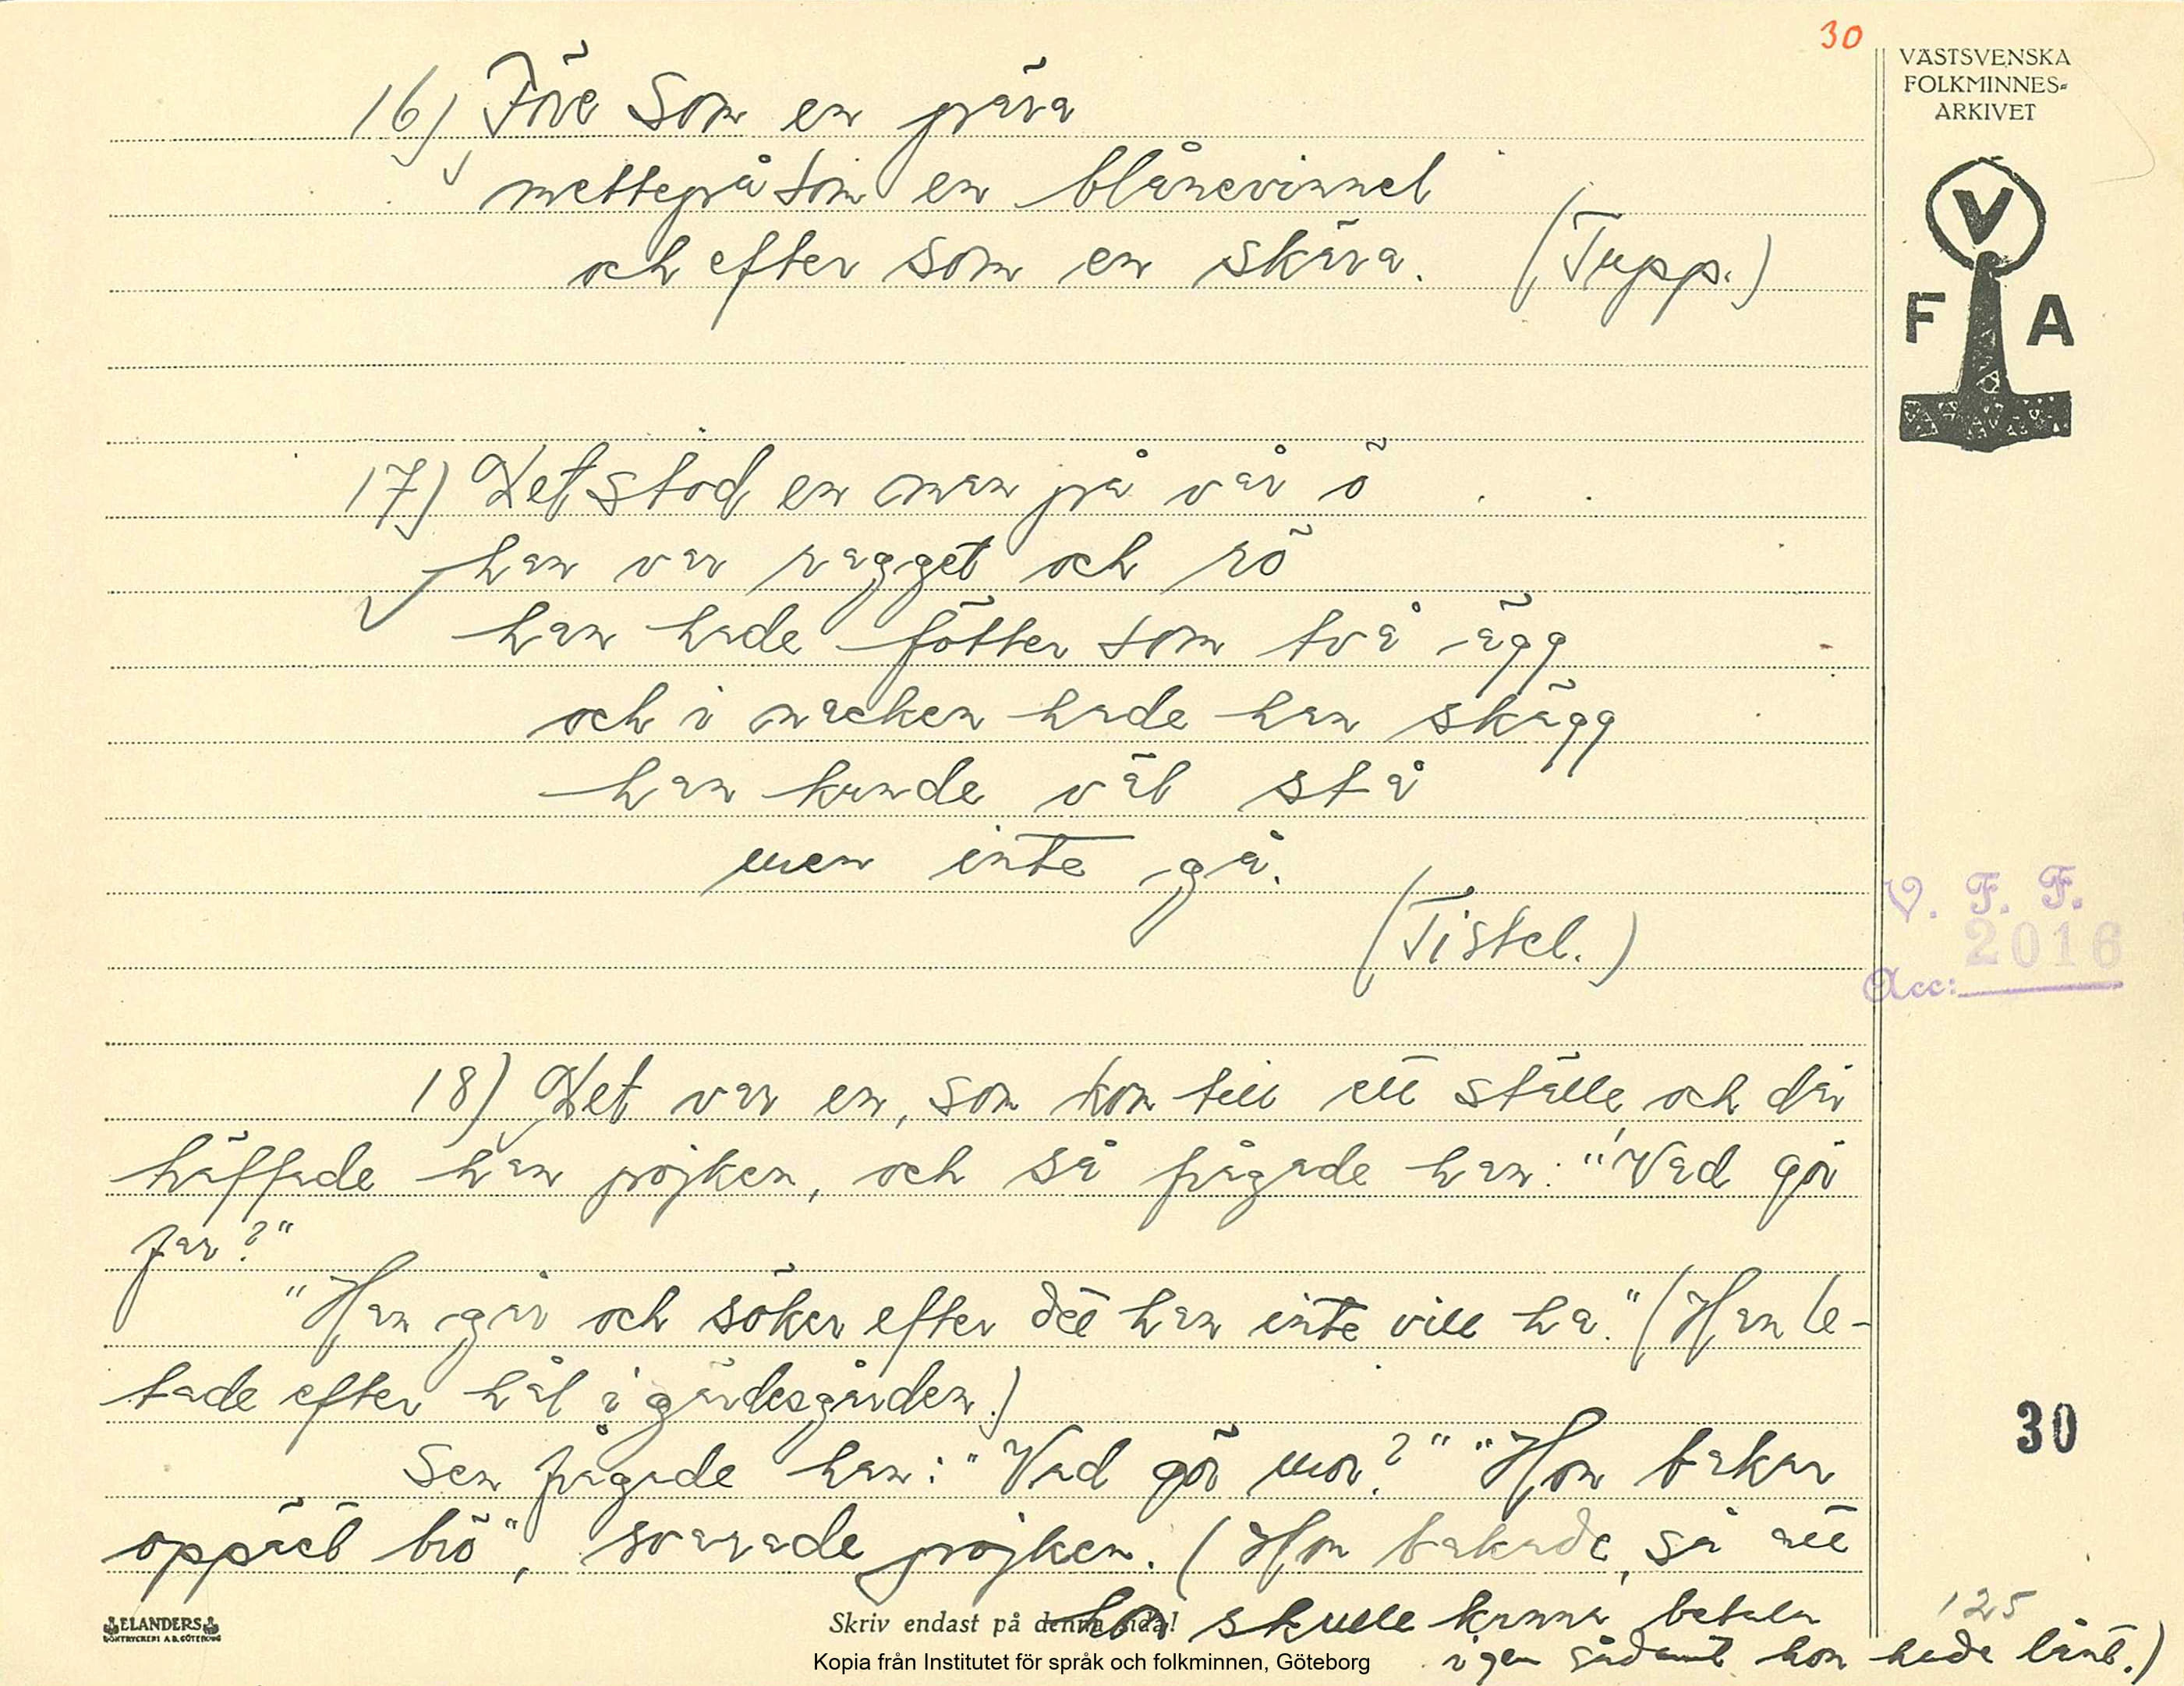 30
VÄSTSVENSKA
FOLKMINNES-
ARKIVET
V
F A
16) Före som en präva
mettepå som en blånevinnel
och efter som en skära. (Tupp.)
17) Det stod en man på vår ö
han var ragget och rö
han hade fötter som två ägg
och i nacken hade han skägg
han kunde väl stå
men inte gå.
(Tistel.)
V. F. F.
2016
Acc:
18) Det var en, som kom till ett ställe, och där
häffade han pojken, och så frågade han: "Vad gör
far?"
"Han går och söker efter det han inte vill ha." (Han le-
tade efter hål i gärdesgården.)
30
Sen frågade han: "Vad gör mor?" "Hon bakar
oppäet brö", svarade pojken. (Hon bakade, så att
hon skulle kunna betala
igen sådant hon hade lånt.)
125
ELANDERS
BOKTRYCKERI A.B. GÖTEBORG
Skriv endast på denna sida!
Kopia från Institutet för språk och folkminnen, Göteborg